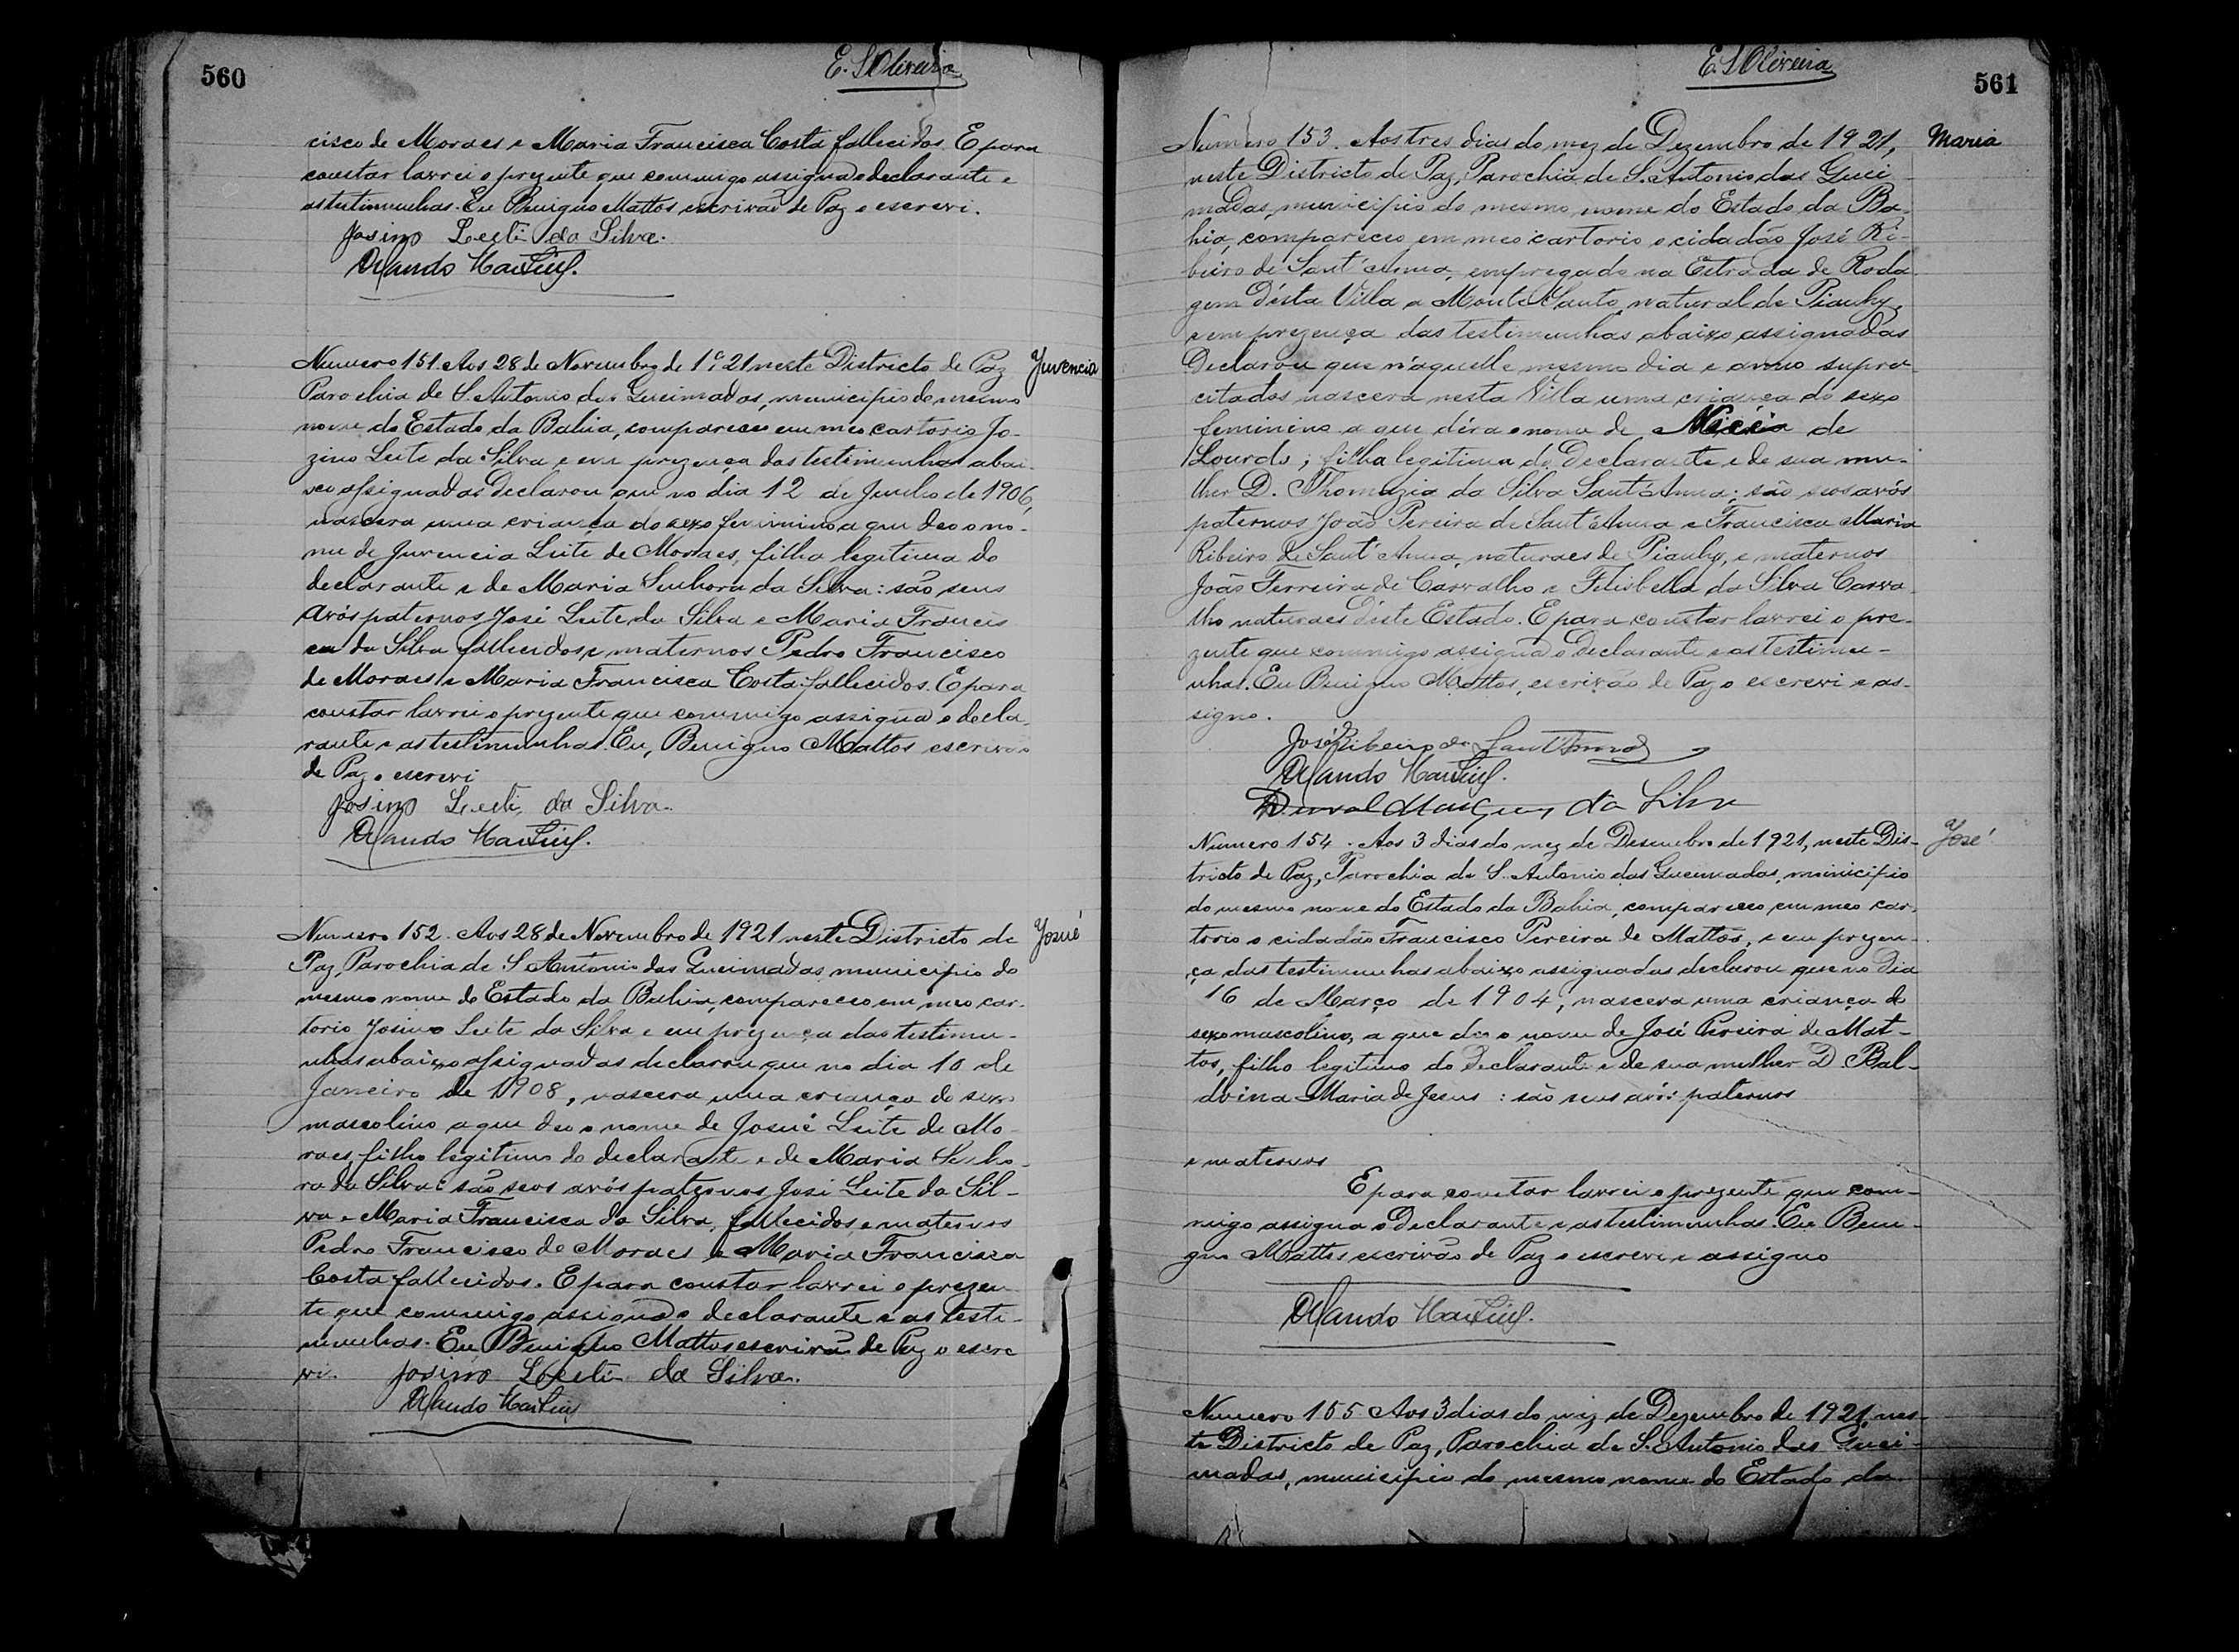 560
E. S. Oliveira
cisco de Moraes e Maria Francisca Costa fallecidos. E para
constar lavrei o prezente que commigo assigna o declarante e
as testimunhas. Eu Benigno Mattos escrivão de Paz o escrevi.
Josino Leite da Silva.
Orlando Martins.
Numero 151. Aos 28 de Novembro de 1921 neste Districto de Paz
Juvencia
Parochia de S. Antonio das Queimadas, municipio do mesmo
nome do Estado da Bahia, compareceu em meo cartorio Jo-
zino Leite da Silva e em prezença das testimunhas abai-
xo assignadas declarou que no dia 12 de Junho de 1906,
nascera uma criança do sexo feminino a que deo o no-
me de Juvencia Leite de Moraes, filha legitima do
declarante e de Maria Senhora da Silva: são seus
avós paternos José Leite da Silva e Maria Francis
ca da Silva fallecidos e maternos Pedro Francisco
de Moraes e Maria Francisca Costa fallecidos. E para
constar lavrei o prezente que commigo assigna o decla-
rante e as testimunhas. Eu, Benigno Mattos escrivão
de Paz o escrevi
Josino Leite da Silva.
Orlando Martins.
Numero 152. Aos 28 de Novembro de 1921 neste Districto de
Josué
Paz, Parochia de S. Antonio das Queimadas, municipio do
mesmo nome do Estado da Bahia, compareceo em meo car-
torio Josino Leite da Silva e em prezença das testimu-
nhas abaixo assignadas declarou que no dia 10 de
Janeiro de 1908, nascera uma criança do sexo
mascolino a que deo o nome de Josué Leite de Mo-
raes, filho legitimo do declarante e de Maria Senho-
ra da Silva: são seos avós paternos José Leite da Sil-
va e Maria Francisca da Silva, fallecidos, e maternos
Pedro Francisco de Moraes e Maria Francisca
Costa fallecidos. E para constar lavrei o prezen-
te que commigo assigna o declarante e as testi-
munhas. Eu Benigno Mattos, escrivão de Paz o escre
vi. Josino Leite da Silva.
Orlando Martins
E. S. Oliveira
561
Numero 153. Aos tres dias do mez de Dezembro de 1921,
Maria
neste Districto de Paz, Parochia de S. Antonio das Quei
madas, municipio do mesmo nome do Estado da Ba-
hia, compareceo em meo cartorio o cidadão José Ri-
beiro de Sant'Anna, empregado na Estrada de Roda
gem d'ésta Villa a Monte Santo, natural de Piauhy,
e em prezença das testimunhas abaixo assignadas
Declarou que n'aquelle mesmo dia e anno supra-
citados nascera nesta Villa uma criança do sexo
feminino a que déra o nome de Nicéa de
Lourds; filha legitima do Declarante e de sua mu-
lher D. Thomazia da Silva Sant'Anna; são seos avós
paternos João Pereira de Sant'Anna e Francisca Maria
Ribeiro de Sant'Anna, naturaes de Piauhy, e maternos
João Ferreira de Carvalho e Felisbella da Silva Carva-
lho naturaes d'éste Estado. E para constar lavrei o pre-
zente que commigo assigna o Declarante e as testimu-
nhas. Eu Benigno Mattos, escrivão de Paz o escrevi e as-
signo.
José Ribeiro de Sant'Anna
Orlando Martins.
Durval Marques da Silva
Numero 154. Aos 3 dias do mez de Desembro de 1921, neste Dis-
José
tricto de Paz, Parochia de S. Antonio das Queimadas, municipio
do mesmo nome do Estado da Bahia, compareceo em meo car-
torio o cidadão Francisco Pereira de Mattos, e em prezen-
ça das testimunhas abaixo assignadas declarou que no dia
16 de Março de 1904, nascera uma criança do
sexo mascolino, a que deo o nome de José Pereira de Mat-
tos, filho legitimo do Declarante e de sua mulher D. Bal-
dvina Maria de Jesus: são seus avós paternos
e maternos
E para constar lavrei o prezente que com-
migo assigna o Declarante e as testimunhas. Eu Beni-
gno Mattos escrivão de Paz o escrevi e assigno
Orlando Martins.
Numero 155. Aos 3 dias do mez de Dezembro de 1921, nes-
te Districto de Paz, Parochia de S. Antonio das Quei-
madas, municipio do mesmo nome do Estado da